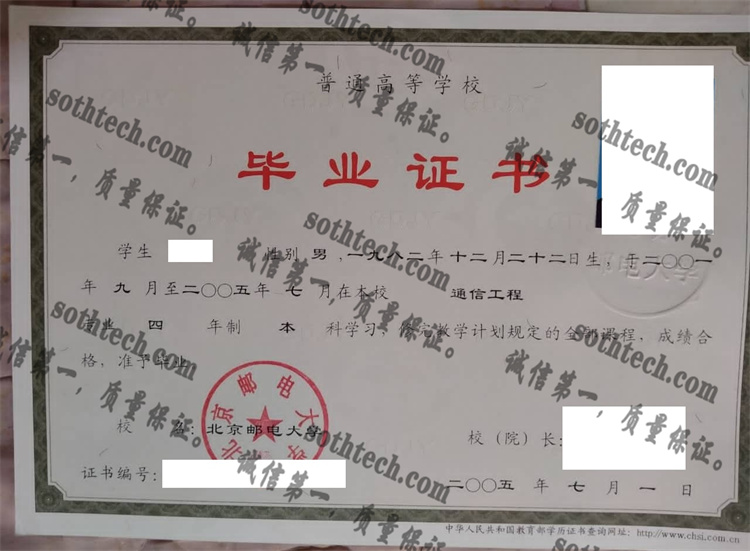 普通高等学校
毕业证书
学生 性别 男 ,一九八二年 十二月二十二日生，于二〇〇一
年 九 月至二〇〇五年 七 月在本校 通信工程
专业 四 年制 本 科学习，修完教学计划规定的全部课程，成绩合
格，准予毕业
校 名：北京邮电大学
校（院）长:
证书编号:
二〇〇五 年 七 月 一 日
中华人民共和国教育部学历证书查询网址：http://www.chsi.com.cn
北京邮电大学
邮电大学
sothtech.com
诚信第一，质量保证。
sothtech.com
诚信第一，质量保证。
sothtech.com
诚信第一，质量保证。
sothtech.com
诚信第一，质量保证。
sothtech.com
诚信第一，质量保证。
sothtech.com
诚信第一，质量保证。
sothtech.com
诚信第一，质量保证。
sothtech.com
诚信第一，质量保证。